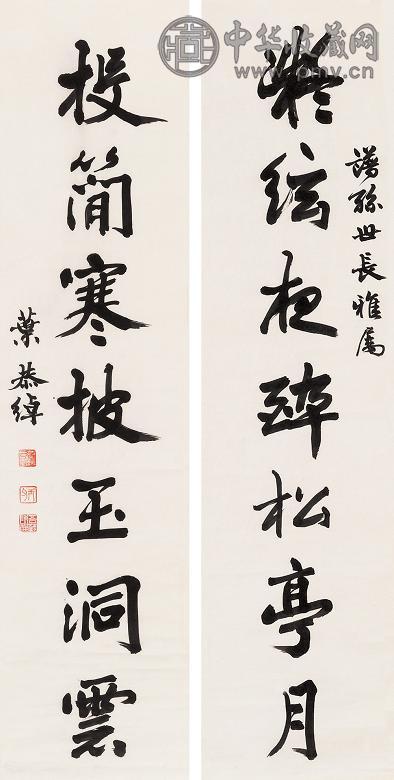 中华收藏网
www.pmv.cn
譜孫世長雅屬
凝絃夜醉松亭月
投簡寒披玉洞雲
葉恭綽